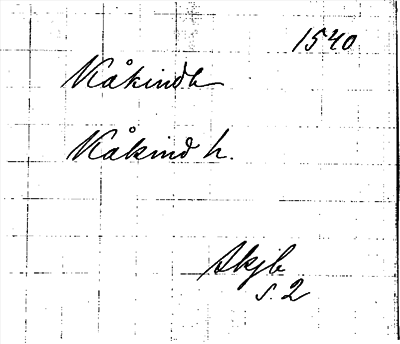 1540
Kåkind h
Kåkind h.
Skjb
s. 2